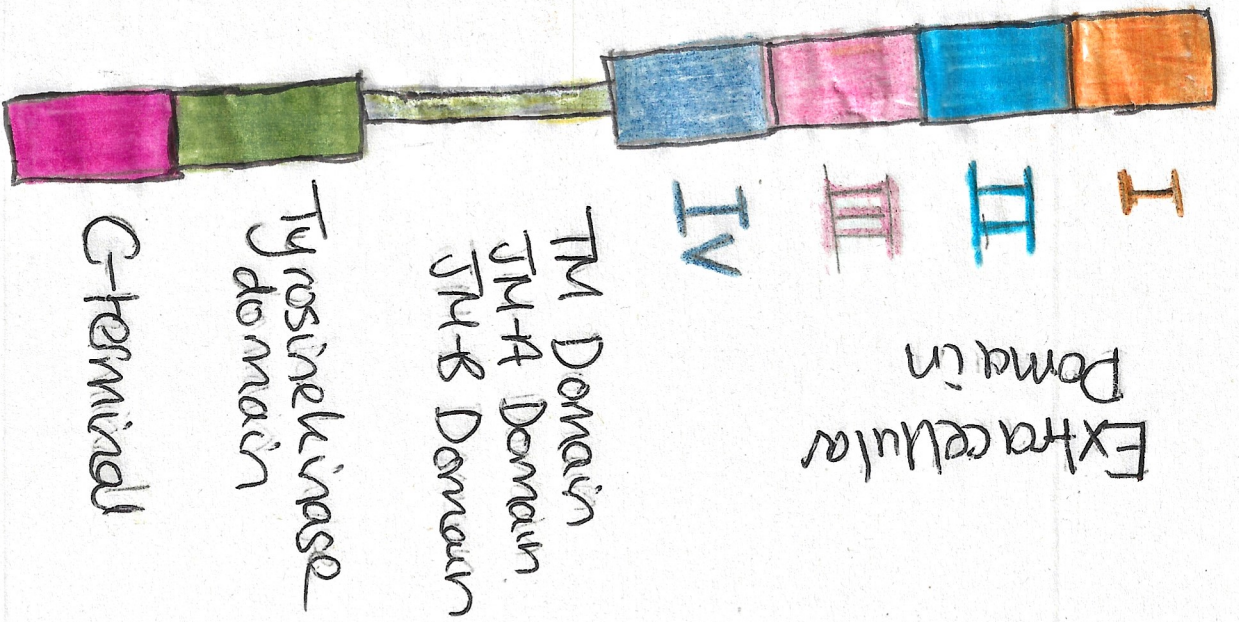 I
II
III
IV
Extracellular
Domain
TM Domain
JM-A Domain
JM-B Domain
Tyrosinekinase
domain
C-terminal